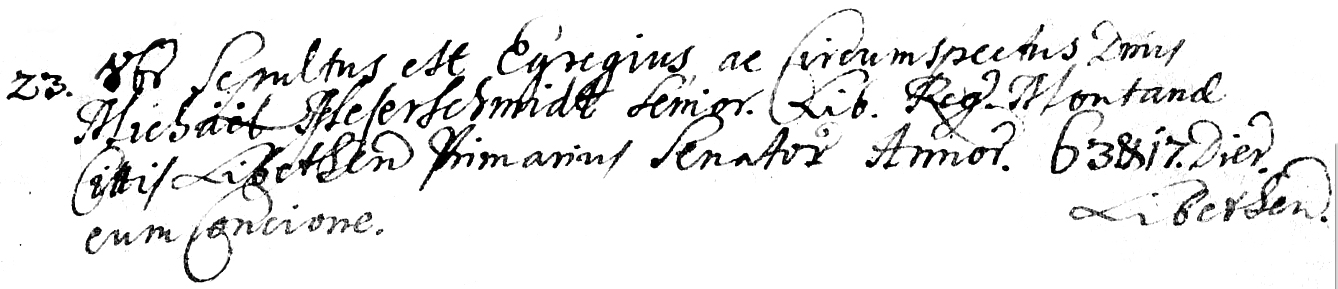 23. 8br Sepultus est Egregius ac Circumspectus Dnus
Michäel Messerschmidt Senior. Lib. Reg. Montanæ
Cittis Libethen Primarius Senator Annor. 63 & 17. Dier.
cum Concione. Libethen.